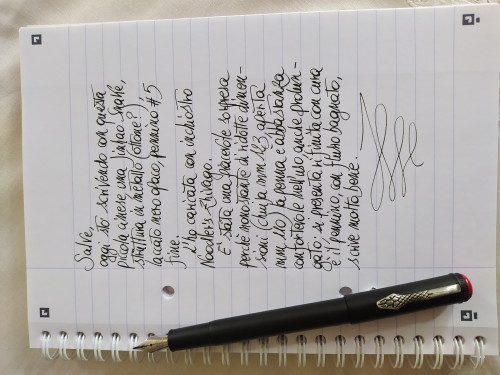 Salve,
oggi sto scrivendo con questa
piccola cinese una Jinhao Snake,
struttura in metallo (ottone?),
laccato nero opaco pennino #5
fine.
L'ho caricata con inchiostro
Noodler's
È stata una piacevole sorpresa
perché nonostante di ridotte dimen-
sioni (chiusa mm 123 aperta
mm 110) la penna è abbastanza
confortevole nell'uso anche prolun-
gato; si presenta rifinita con cura
e il pennino, con flusso bagnato,
scrive molto bene.